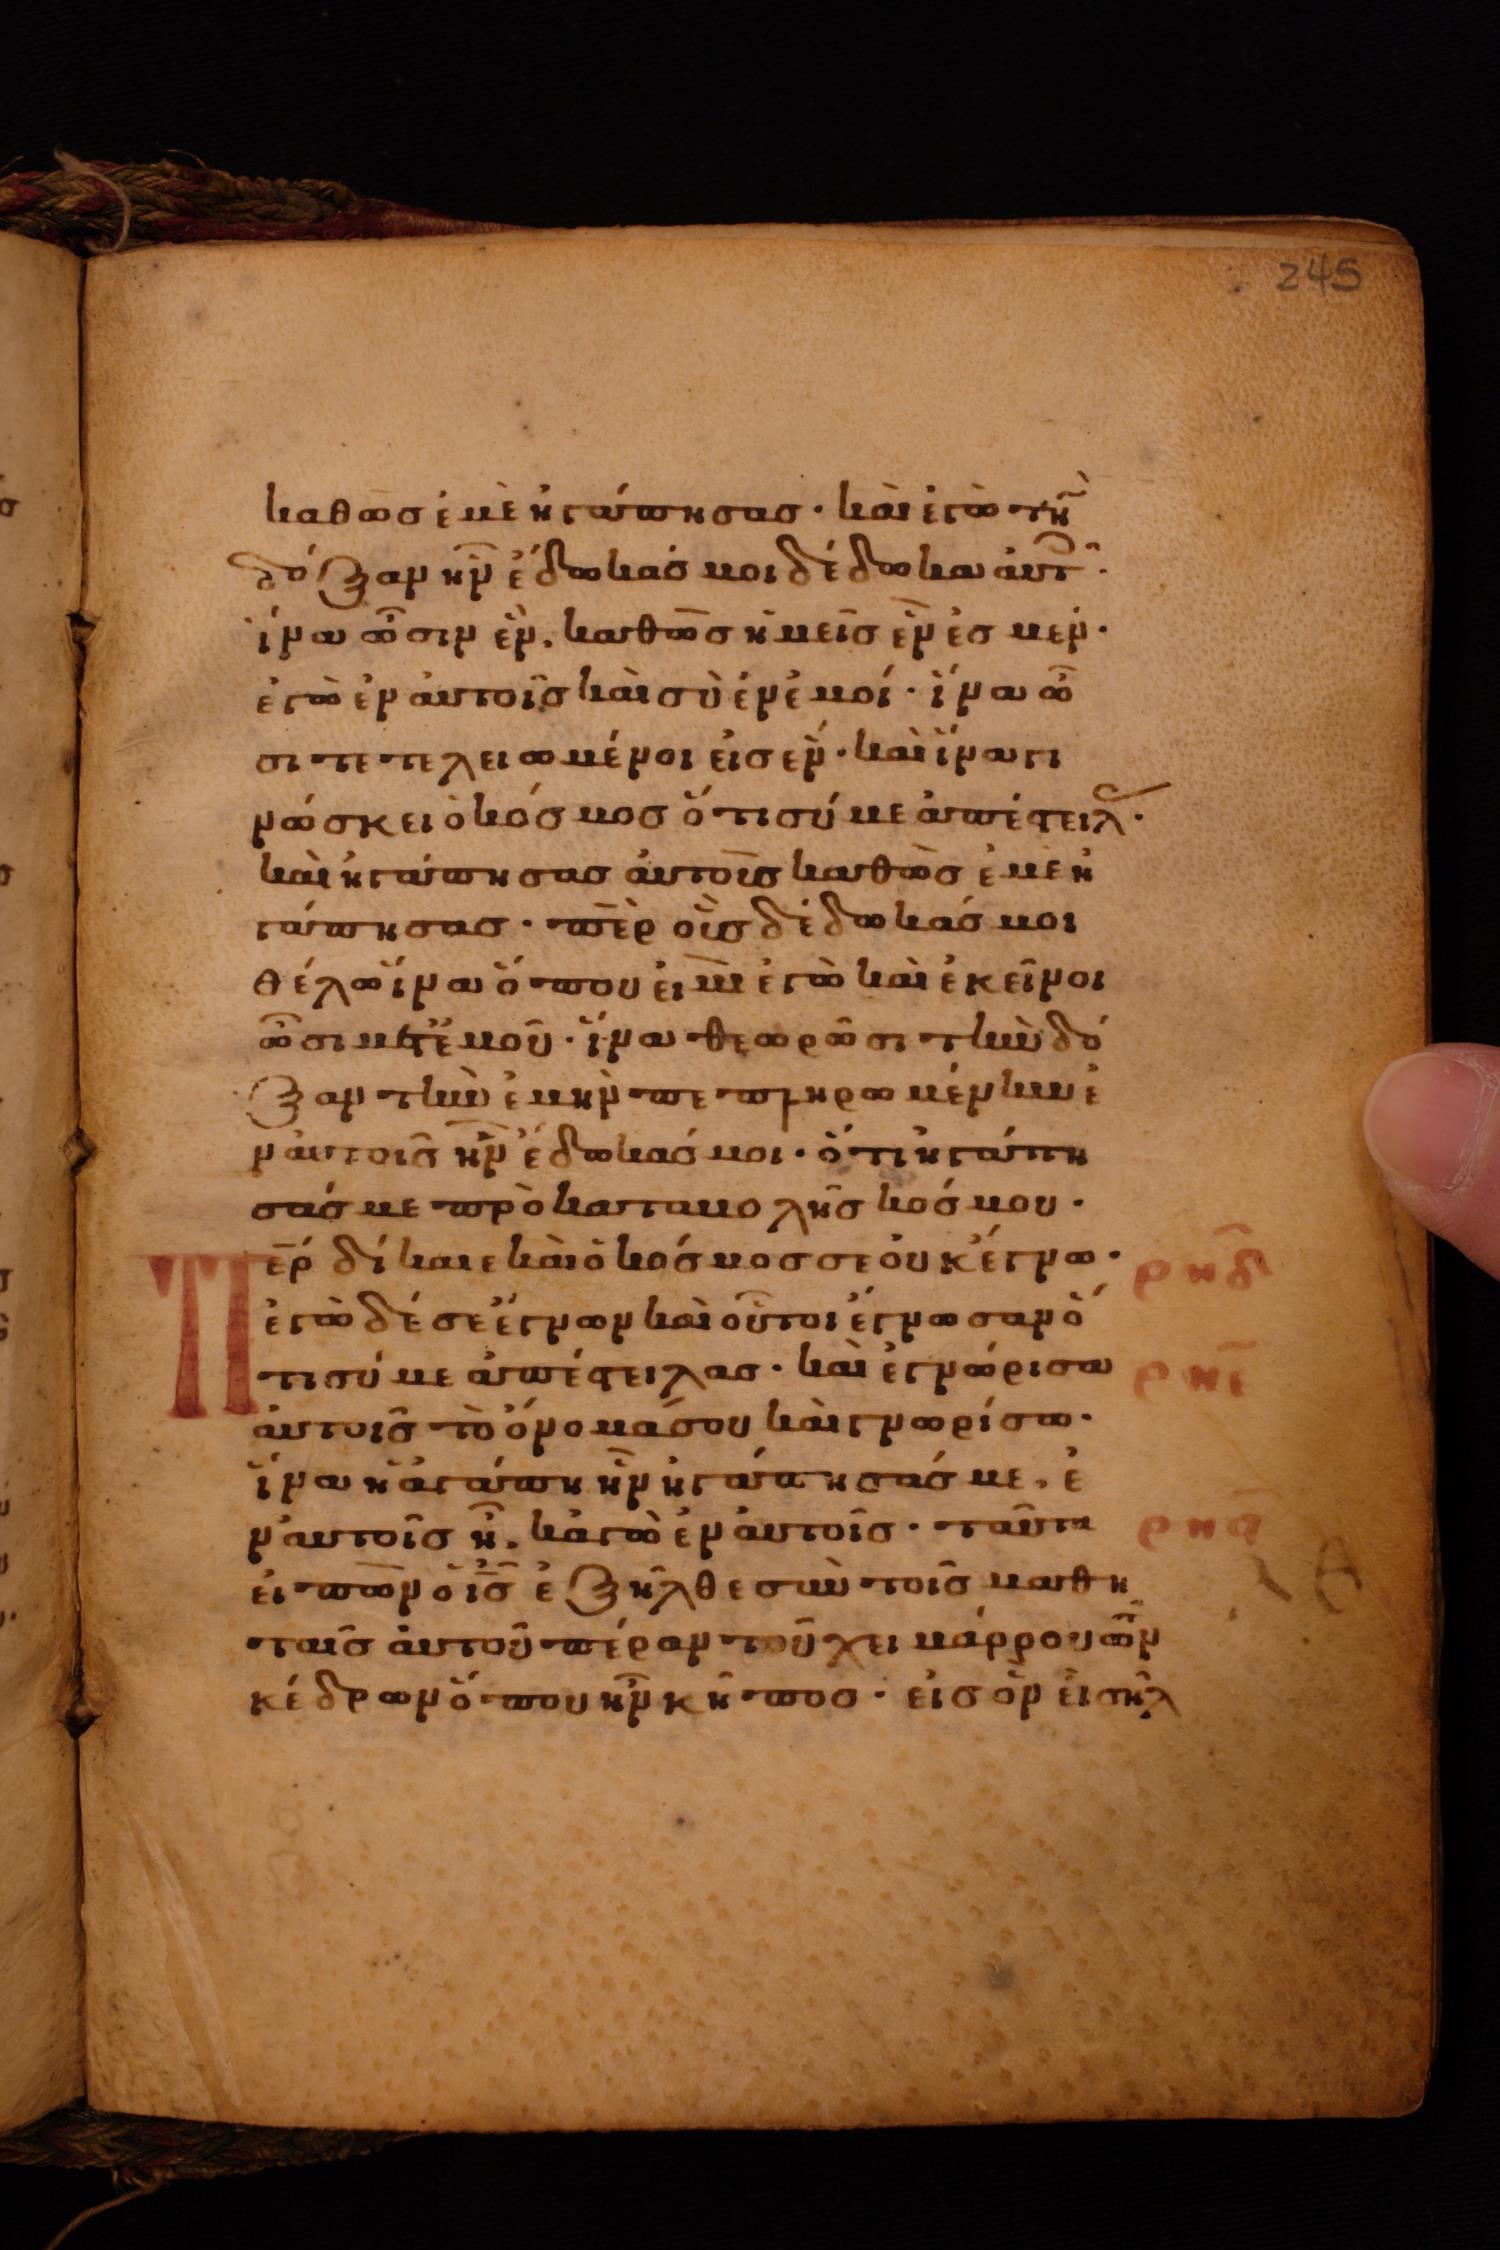 245
καθὼς ἐμὲ ἠγάπησας · καὶ ἐγὼ τὴν
δόξαν ἣν ἔδωκάς μοι δέδωκα αὐτ ·
ἵνα ὦσιν ἕν, καθὼς ἡμεῖς ἕν ἐσμεν ·
ἐγὼ ἐν αὐτοῖς καὶ σὺ ἐν ἐμοί · ἵνα ὦ
σι τετελειωμένοι εἰς ἕν · καὶ ἵνα γι
νώσκει ὁ κόσμος ὅτι σύ με ἀπέστειλ ·
καὶ ἠγάπησας αὐτοὺς καθὼς ἐμὲ ἠ
γάπησας · περ οὓς δέδωκάς μοι
θέλω ἵνα ὅπου εἰμὶ ἐγὼ καὶ ἐκεῖνοι
ὦσι μετ' ἐμοῦ · ἵνα θεωρῶσι τὴν δό
ξαν τὴν ἐμὴν πεπληρωμένην ἐ
ν αὐτοῖς ἣν ἔδωκάς μοι · ὅτι ἠγάπη
σάς με πρὸ καταβολῆς κόσμου ·
Περ δίκαιε καὶ ὁ κόσμος σε οὐκ ἔγνω · ρηδ
ἐγὼ δέ σε ἔγνων καὶ οὗτοι ἔγνωσαν ὅ
τι σύ με ἀπέστειλας · καὶ ἐγνώρισα ρηε
αὐτοῖς τὸ ὄνομά σου καὶ γνωρίσω ·
ἵνα ἡ ἀγάπη ἣν ἠγάπησάς με, ἐ
ν αὐτοῖς ᾖ, κἀγὼ ἐν αὐτοῖς · ταῦτα ρηϛ
εἰπὼν ὁ ις ἐξῆλθε σὺν τοῖς μαθη
ταῖς αὐτοῦ πέραν τοῦ χειμάρρου τῶν
κέδρων ὅπου ἦν κῆπος · εἰς ὃν εἰσῆλ